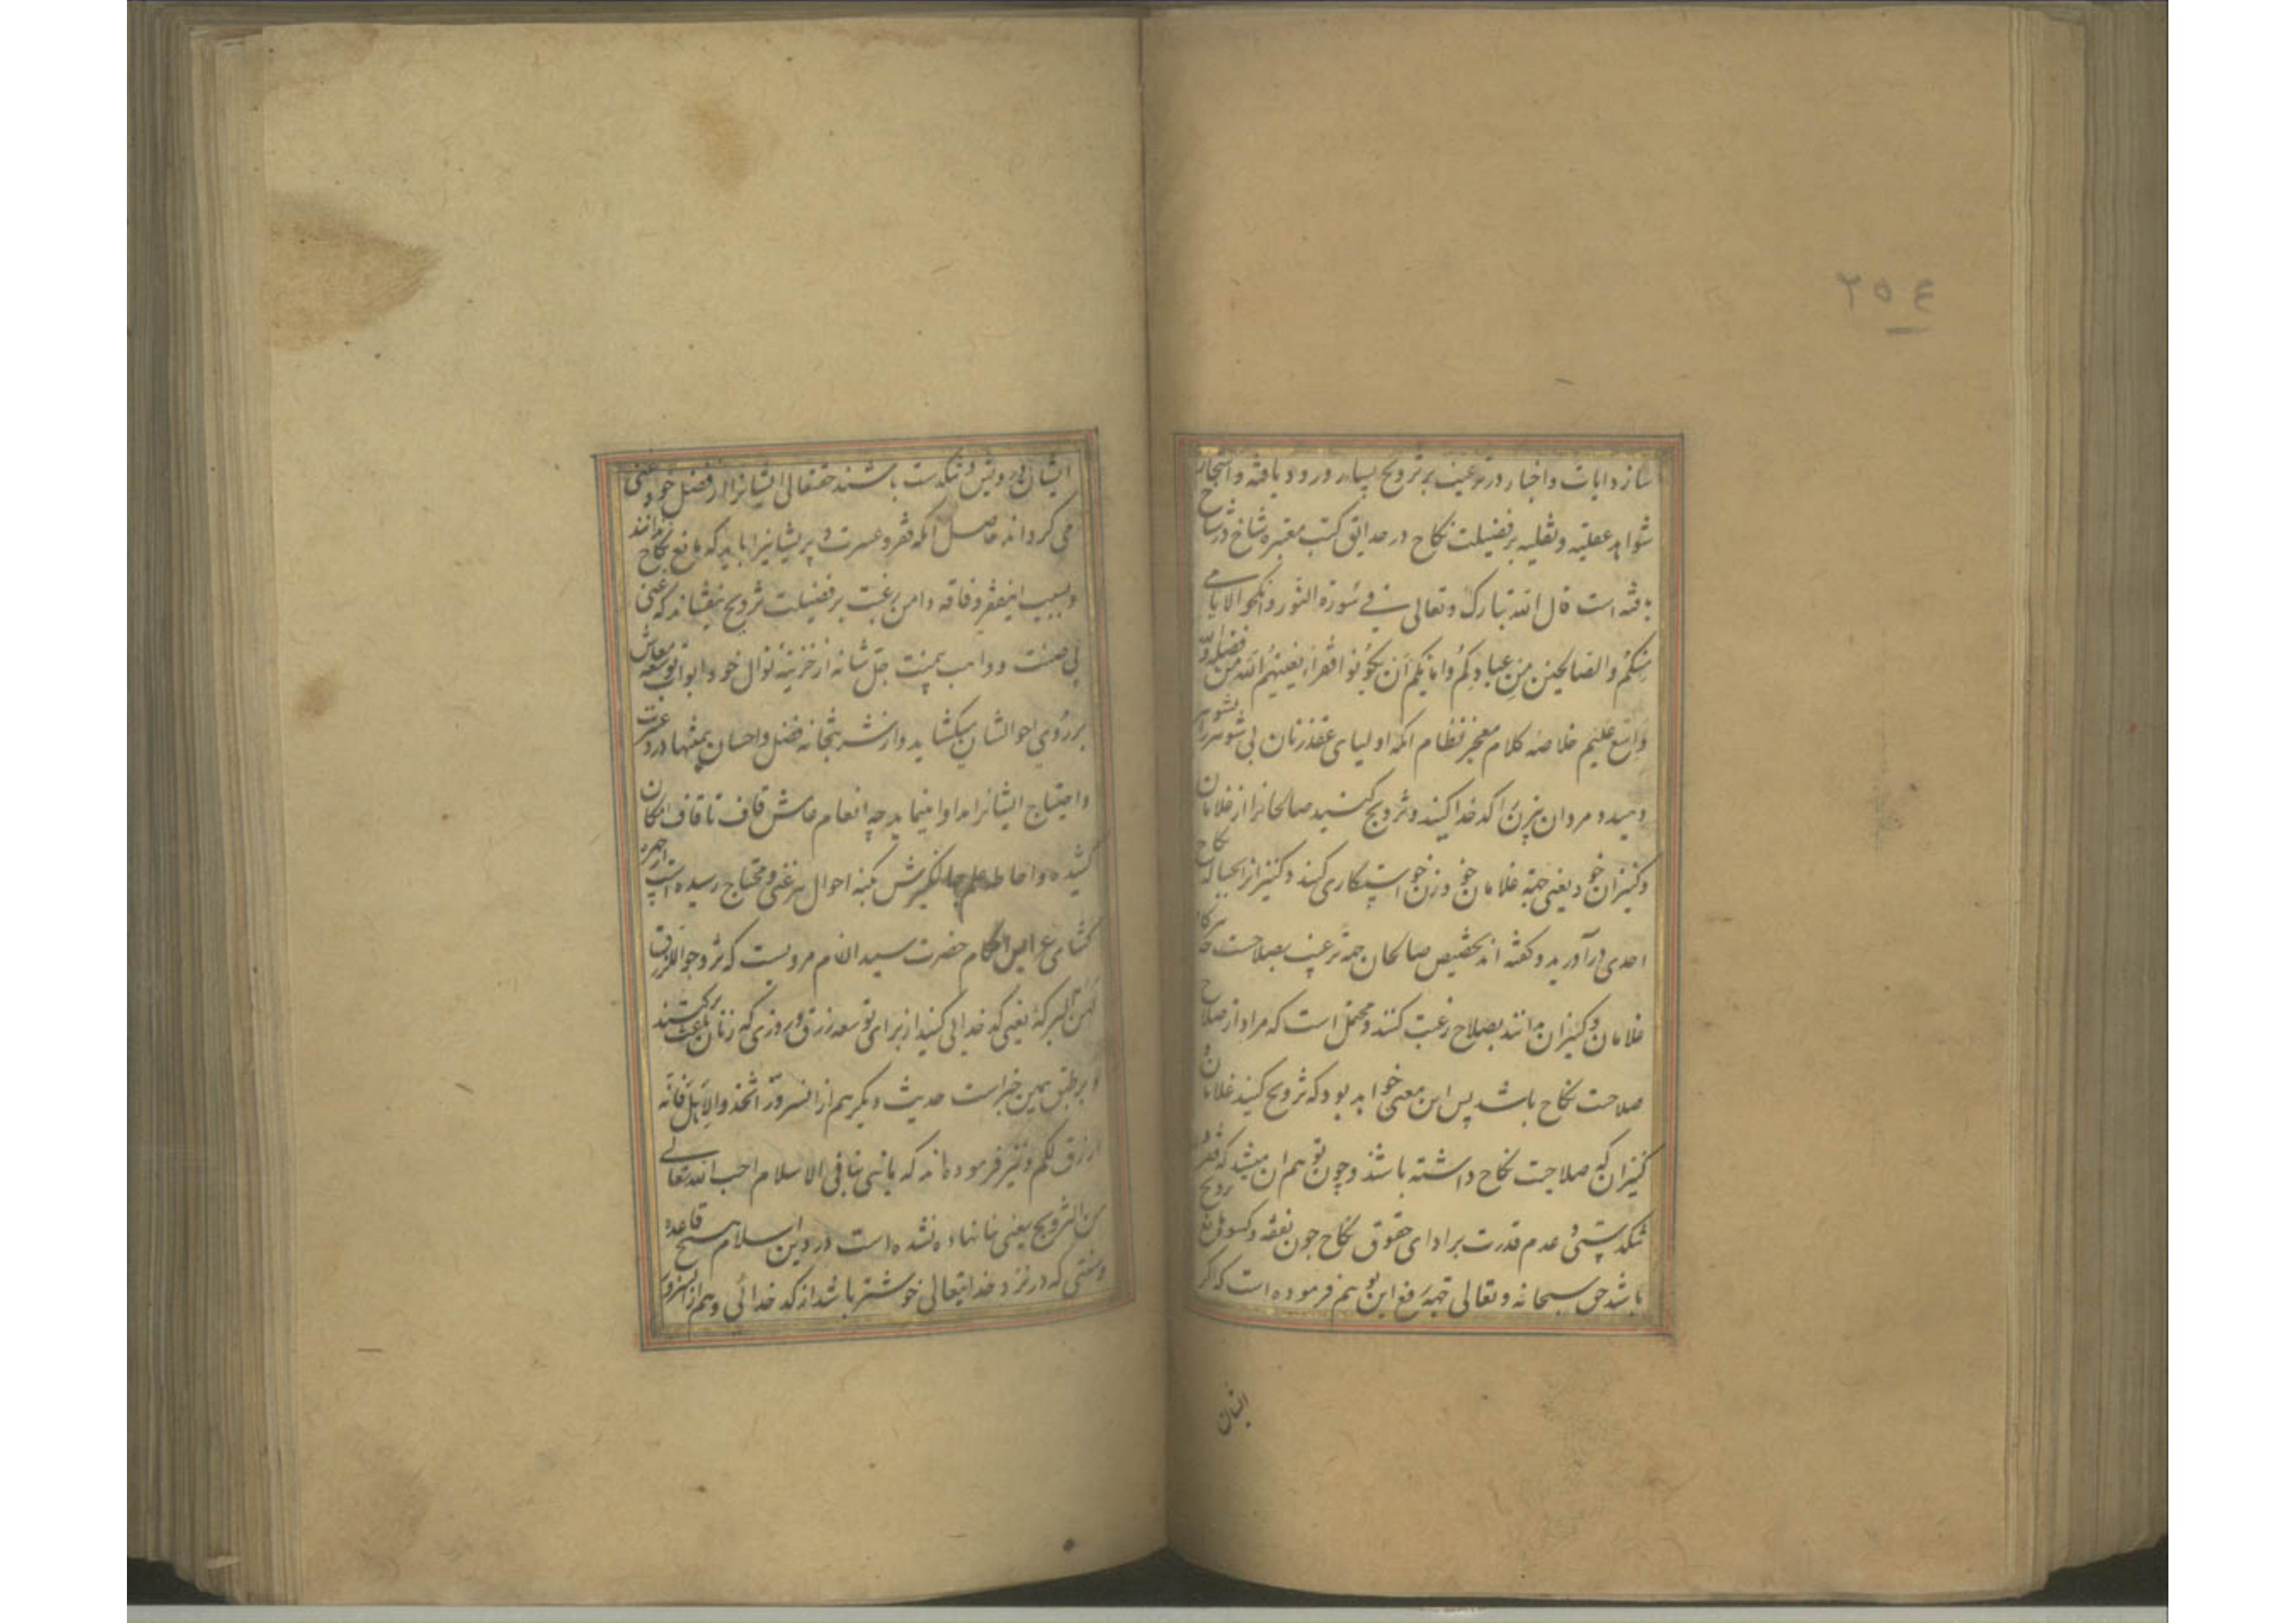 ۲۵۴
سازد و ایات و اخبار در ترغیب بر تزویج بسیار ورود یافته و اشجار
شواهد عقلیه و نقلیه بر فضیلت نکاح در حدایق کتب معتبره شاخ در شاخ
یافته است قال الله تبارک و تعالی فی سورة النور و انکحوا الایامی
منکم و الصالحین من عبادکم و امائکم ان یکونوا فقراء یغنیهم الله من فضله و الله
واسع علیم خلاصه کلام معجز نظام آنکه اولیای عقد زنان بی شوهر را بشوهر
دهید و مردان بی زن را کدخدا کنید و تزویج کنید صالحانرا از غلامان
و کنیزان خود یعنی جهة غلامان خود زن خواستکاری کنید و کنیزانرا بحباله نکاح
احدی درآورید و کفته اند تخصیص صالحان جهة ترغیب بصلاحست تا هرکاه
غلامان و کنیزان دانند بصلاح رغبت کنند و محتمل است که مراد از صلاح
صلاحت نکاح باشد پس این معنی خواهد بود که تزویج کنید غلامان و
کنیزان که صلاحیت نکاح داشته باشند و چون توهم آن میشد که فقر و
تنکدستی و عدم قدرت بر ادای حقوق نکاح چون نفقه و کسوة مانع تزویج
باشد حق سبحانه و تعالی جهة رفع این توهم فرموده است که اکر
ایشان
ایشان درویش و تنکدست باشند حقتعالی ایشانرا از فضل خود غنی
می کرداند حاصل آنکه فقر و عسرت و پریشانیرا باید که مانع نکاح ندانند
و بسبب اینفقر و فاقه دامن رغبت بر فضیلت تزویج نیفشاند که غنی
بی ضنت و واهب بیمنت جل شانه از خزینه نوال خود ابواب توسعه معاش
بر روی احوالشان میکشاید و از شربتخانه فضل و احسان بیمنتها درد عسرت
و احتیاج ایشانرا مداوا مینماید چه انعام عامش قاف تا قاف امکان
کشیده و احاطه علم جهانکیرش بکنه احوال هر غنی و محتاج رسیده است از چهره
کشای عرایس احکام حضرت سید الانام مرویست که تزوجوا للرزق
لهن البرکة یعنی کدخدایی کنید از برای توسعه رزق و روزی که زنان باعث برکتند
و بر طبق همین خبر است حدیث دیکر هم از انسرور اتخذوا الاهل فانه
ارزق لکم و نیز فرموده اند که ما بنی بنا فی الاسلام احب الله تعالی
من التزویج یعنی بنا نهاده نشده است در دین اسلام هیچ قاعده
و سنتی که در نزد خدایتعالی خوشتر باشد از کدخدائی و هم از انسرور